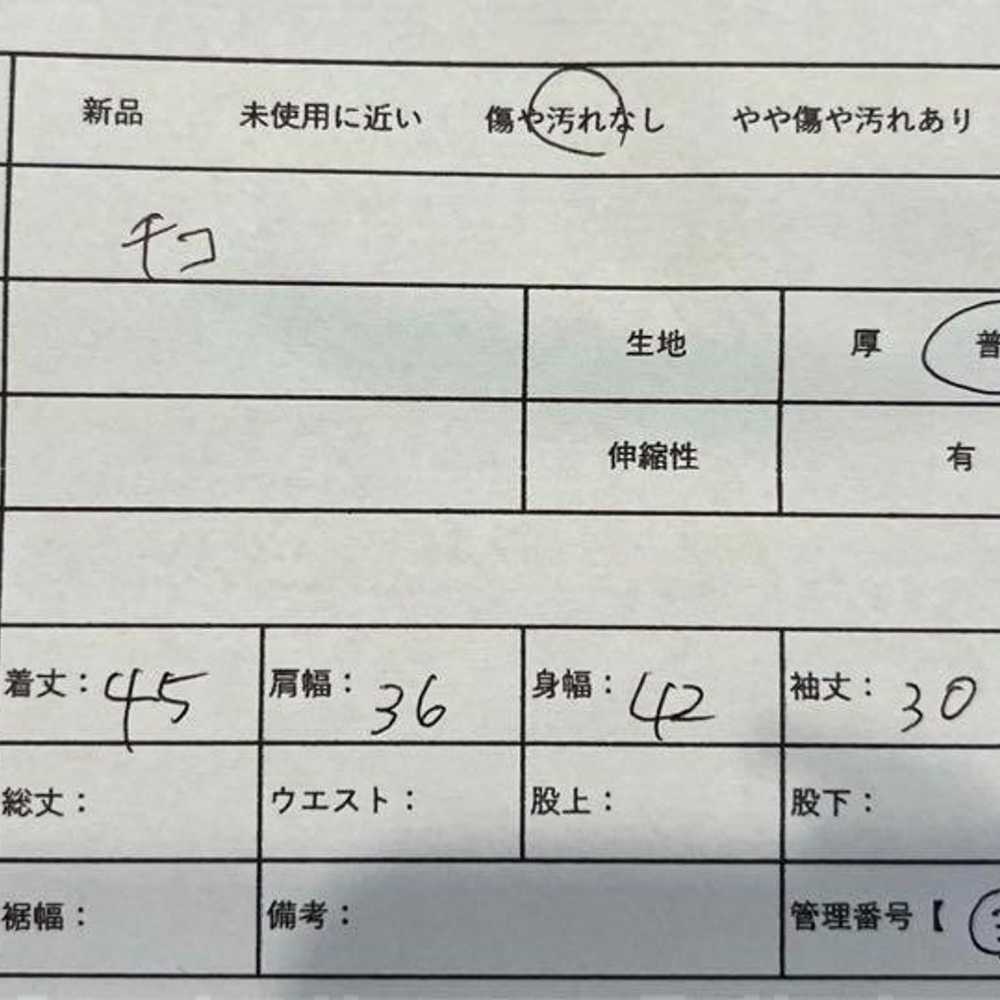 新品 未使用に近い 傷や汚れなし やや傷や汚れあり
チコ
生地 厚 普
伸縮性 有
着丈：45 肩幅：36 身幅：42 袖丈：30
総丈： ウエスト： 股上： 股下：
裾幅： 備考： 管理番号【